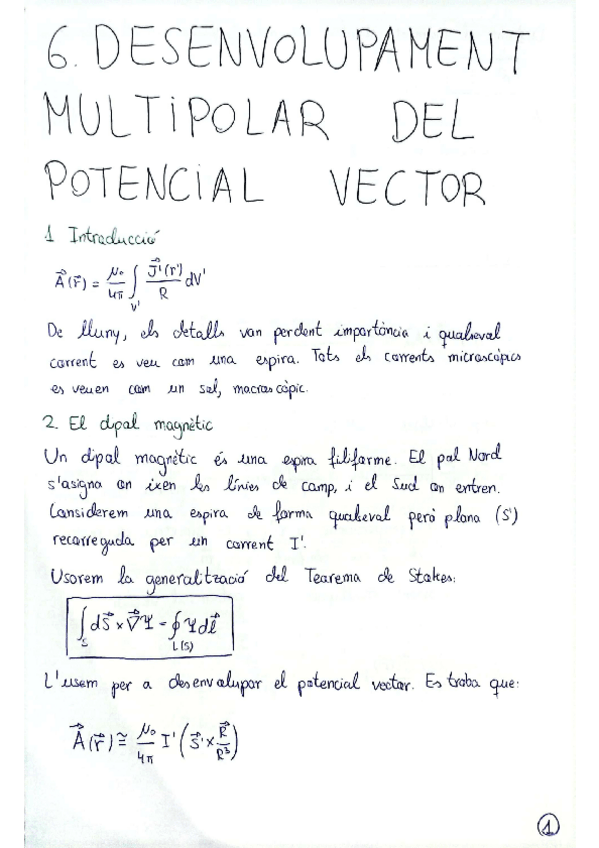 6. DESENVOLUPAMENT
MULTIPOLAR DEL
POTENCIAL VECTOR
1 Introducció
A⃗(r⃗) = μ₀/4π ∫_V' J⃗'(r⃗')/R dV'
De lluny, els detalls van perdent importància i qualseval
corrent es veu com una espira. Tots els corrents microscòpics
es veuen com un sol, macroscòpic.
2. El dipol magnètic
Un dipol magnètic és una espira filiforme. El pol Nord
s'asigna on ixen les línies de camp, i el Sud on entren.
Considerem una espira de forma qualseval però plana (S')
recorreguda per un corrent I'.
Usorem la generalització del Teorema de Stokes:
∫_S dS⃗ × ∇⃗Ψ = ∮_L(S) Ψ dl⃗
L'usem per a desenvolupar el potencial vector. Es troba que:
A⃗(r⃗) ≅ μ₀/4π I' (S⃗' × R⃗/R³)
1